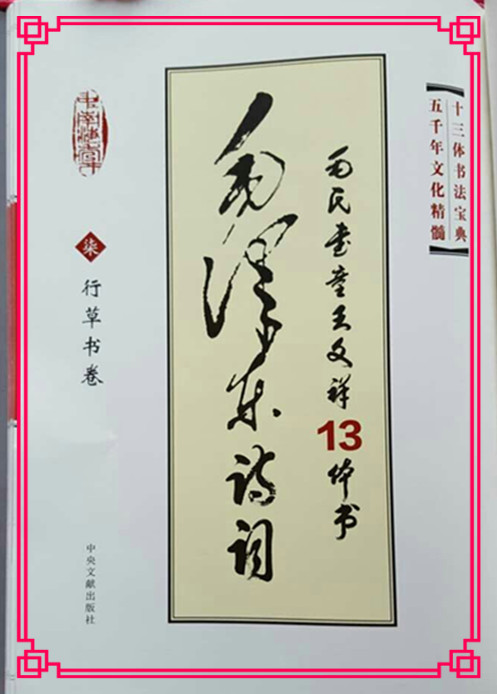 十三体书法宝典
五千年文化精髓
民書童王文祥13体书
毛泽东诗词
柒
行草书卷
中央文献出版社